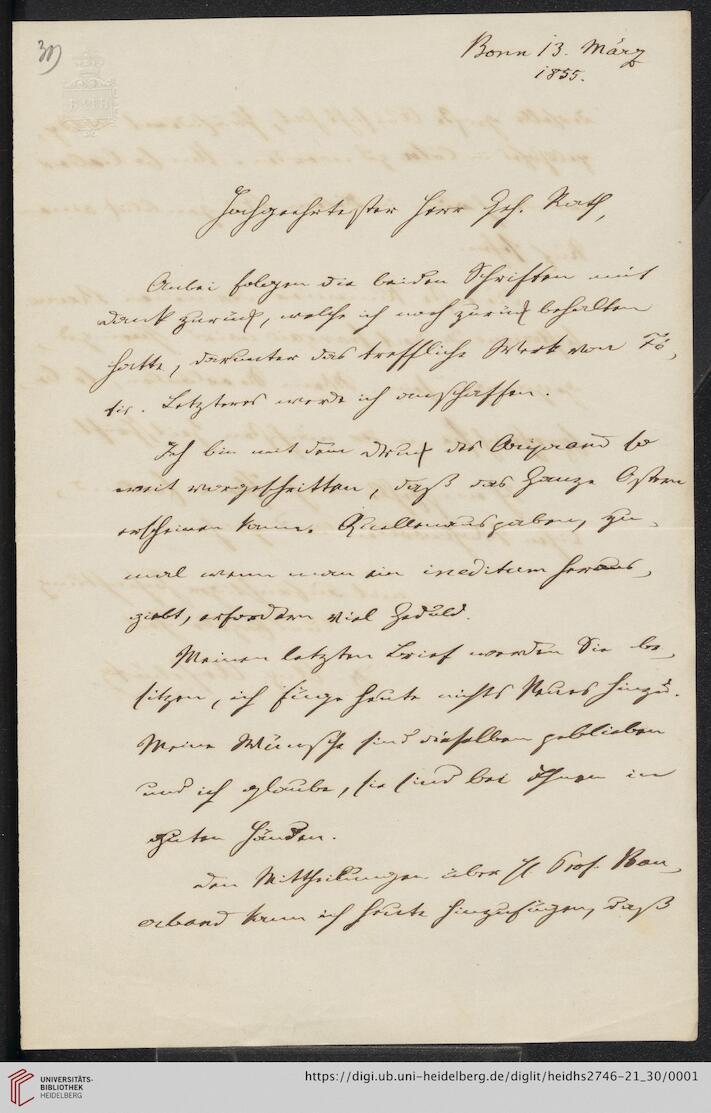 30)
Bonn 13. März
1855.
BATH
Hochgeehrtester Herr Geh. Rath,
Anbei folgen die beiden Schriften mit
Dank zurück, welche ich noch zurück behalten
hatte, darunter das treffliche Werk von Fö,
Letzteres werde ich anschaffen.
Ich bin mit dem Druck des so
weit vorgeschritten, daß das Ganze Ostern
erscheinen kann. Quellenausgaben, zu,
mal wenn man ein ineditum heraus,
giebt, erfordern viel Geduld.
Meinen letzten Brief werden Sie be,
sitzen, ich füge heute nichts Neues hinzu.
Meine Wünsche sind dieselben geblieben
und ich glaube, sie sind bei Ihnen in
guten Händen.
Den Mittheilungen über H Prof. Bau,
erband kann ich heute hinzufügen, daß
UNIVERSITÄTS-
BIBLIOTHEK
HEIDELBERG
https://digi.ub.uni-heidelberg.de/diglit/heidhs2746-21_30/0001